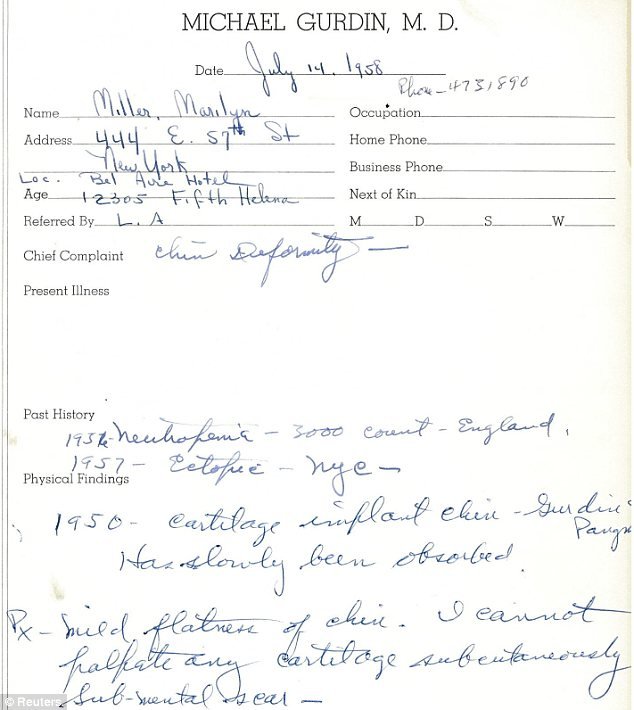 MICHAEL GURDIN, M. D.
Date July 14, 1958
Phone-4731890
Name Miller, Marilyn Occupation
Address 444 E. 57th St Home Phone
New York Business Phone
Loc. Bel Aire Hotel
Age 12305 Fifth Helena Next of Kin
Referred By L. A M D S W
Chief Complaint Chin Deformity —
Present Illness
Past History
1956 Neutropenia – 3000 count – England.
1957 – Ectopic – NYC –
Physical Findings
1950 – cartilage implant chin – Gurdin
Has slowly been absorbed.
Px – Mild flatness of chin. I cannot
palpate any cartilage subcutaneously
Sub-mental scar –
© Reuters